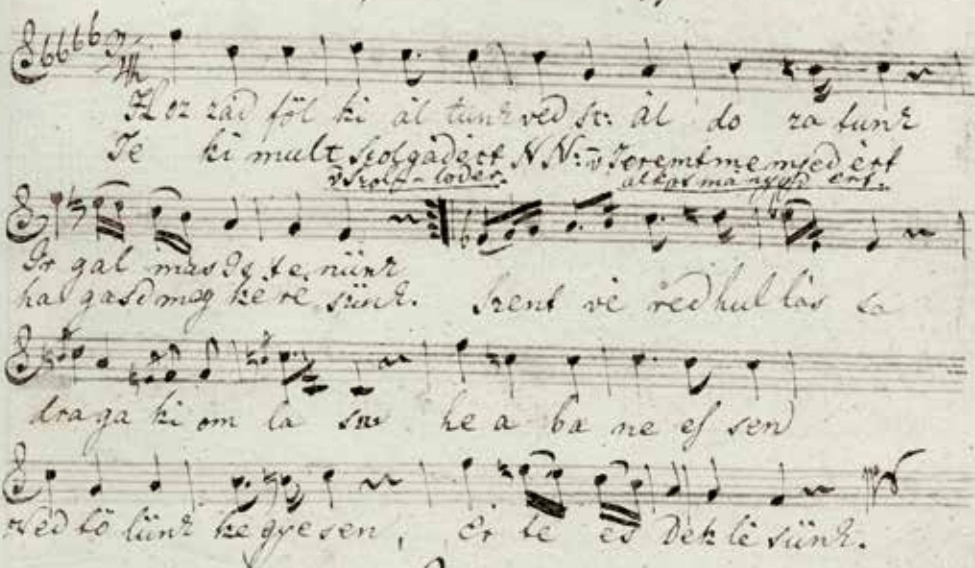 Hoz zád föl ki ál tunk ved sz: ál do za tunk
Te ki mult szolgádért N N: v Teremtményedért
v Szolg-lódér. alkotmányod ért.
Ir gal mas Is te nünk
hal gasd meg ké ré sünk. Szent vé red hul lás sa
draga ki om lá sa he a ba ne es sen
Ved tő lünk ke gye sen, ér te es dek lé sünk.